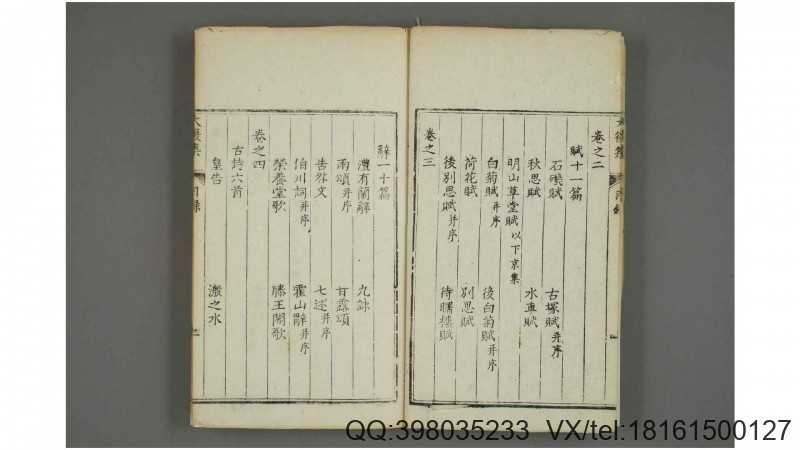 卷之二
賦十一篇
石磯賦 古塚賦并序
秋思賦 水車賦
明山草堂賦以下京集
白菊賦并序 後白菊賦并序
荷花賦 別思賦
後別思賦并序 待曙樓賦
卷之三
辭一十篇
澧有蘭辭 九詠
雨頌并序 甘露頌
告然文 七述并序
伯川詞并序 霍山辭并序
榮養堂歌 滕王閣歌
卷之四
古詩六首
皇告 激之水
目錄
QQ:398035233 VX/tel:18161500127